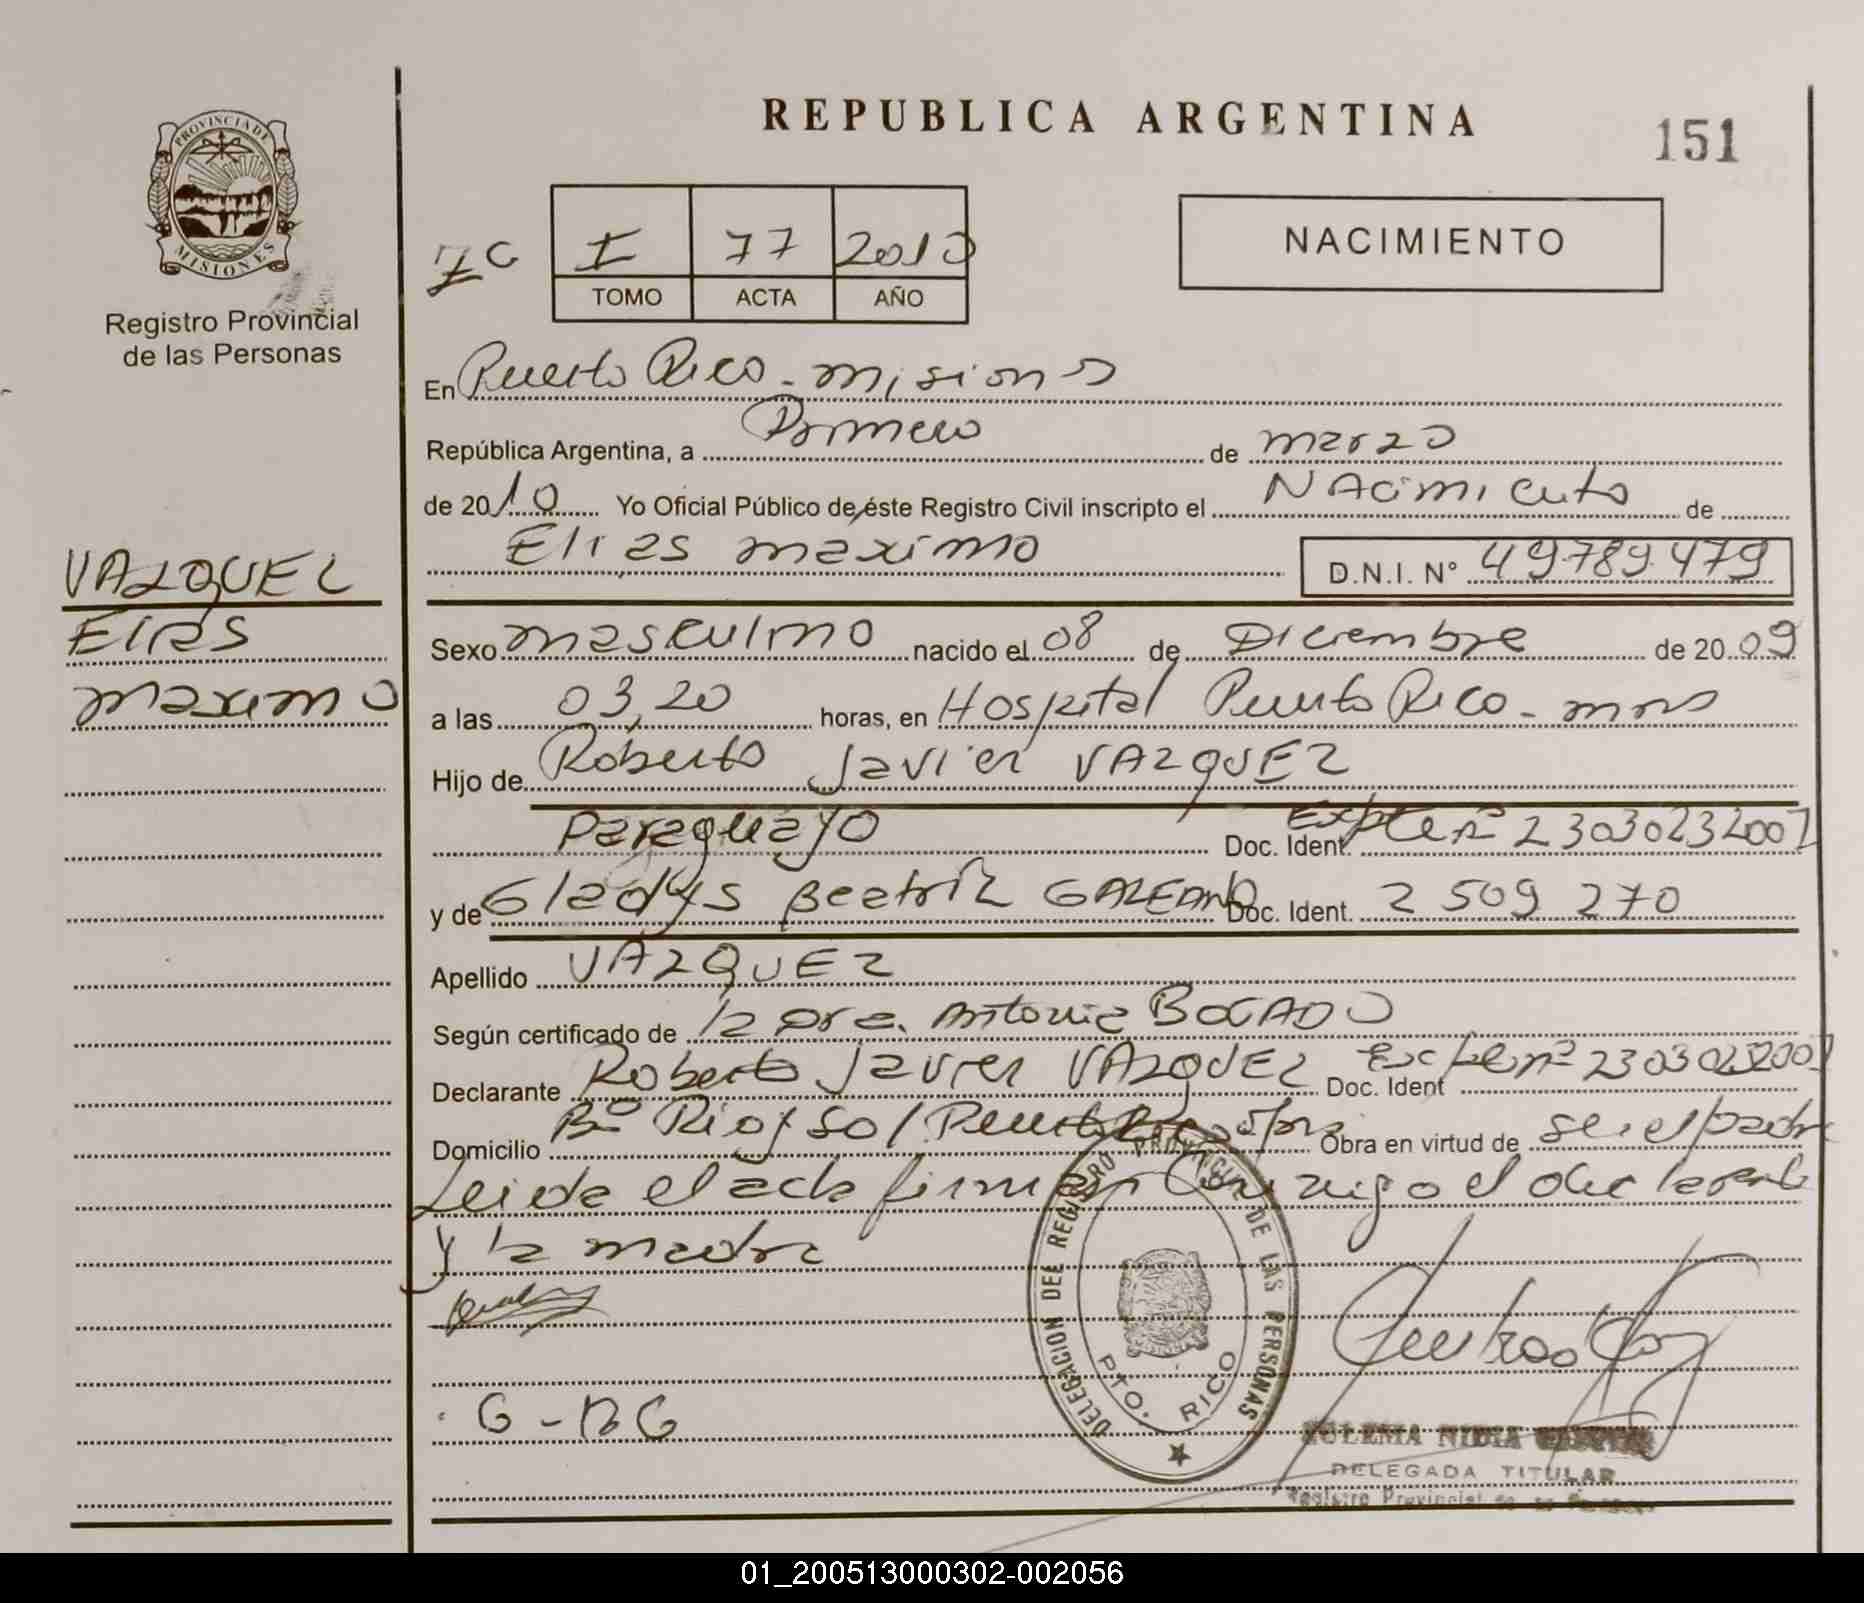 REPUBLICA ARGENTINA
151
PROVINCIA DE
MISIONES
Registro Provincial
de las Personas
I 77 2010
TOMO ACTA AÑO
NACIMIENTO
En Puerto Rico - misiones
República Argentina, a Primero de marzo
de 2010 Yo Oficial Público de éste Registro Civil inscripto el NAcimiento de
Elias maximo D.N.I. N° 49.789.479
VAZQUEZ
Elias
maximo
Sexo masculino nacido el 08 de Diciembre de 2009
a las 03,20 horas, en Hospital Puerto Rico - mnes
Hijo de Roberto Javier VAZQUEZ
Paraguayo Doc. Ident. Expte nº 23030232007
y de Gladys Beatriz GALEANO Doc. Ident. 2 509 270
Apellido VAZQUEZ
Según certificado de la Dra. Antonia BOGADO
Declarante Roberto Javier VAZQUEZ Doc. Ident Expte nº 23030232007
Domicilio Bº Obra en virtud de ser el padre
Leida el acta firman Conmigo el declarante
y la madre
DELEGACION DEL REGISTRO PROVINCIAL DE LAS PERSONAS
PTO. RICO
NIDIA
DELEGADA TITULAR
Registro Provincial de las Personas
01_200513000302-002056